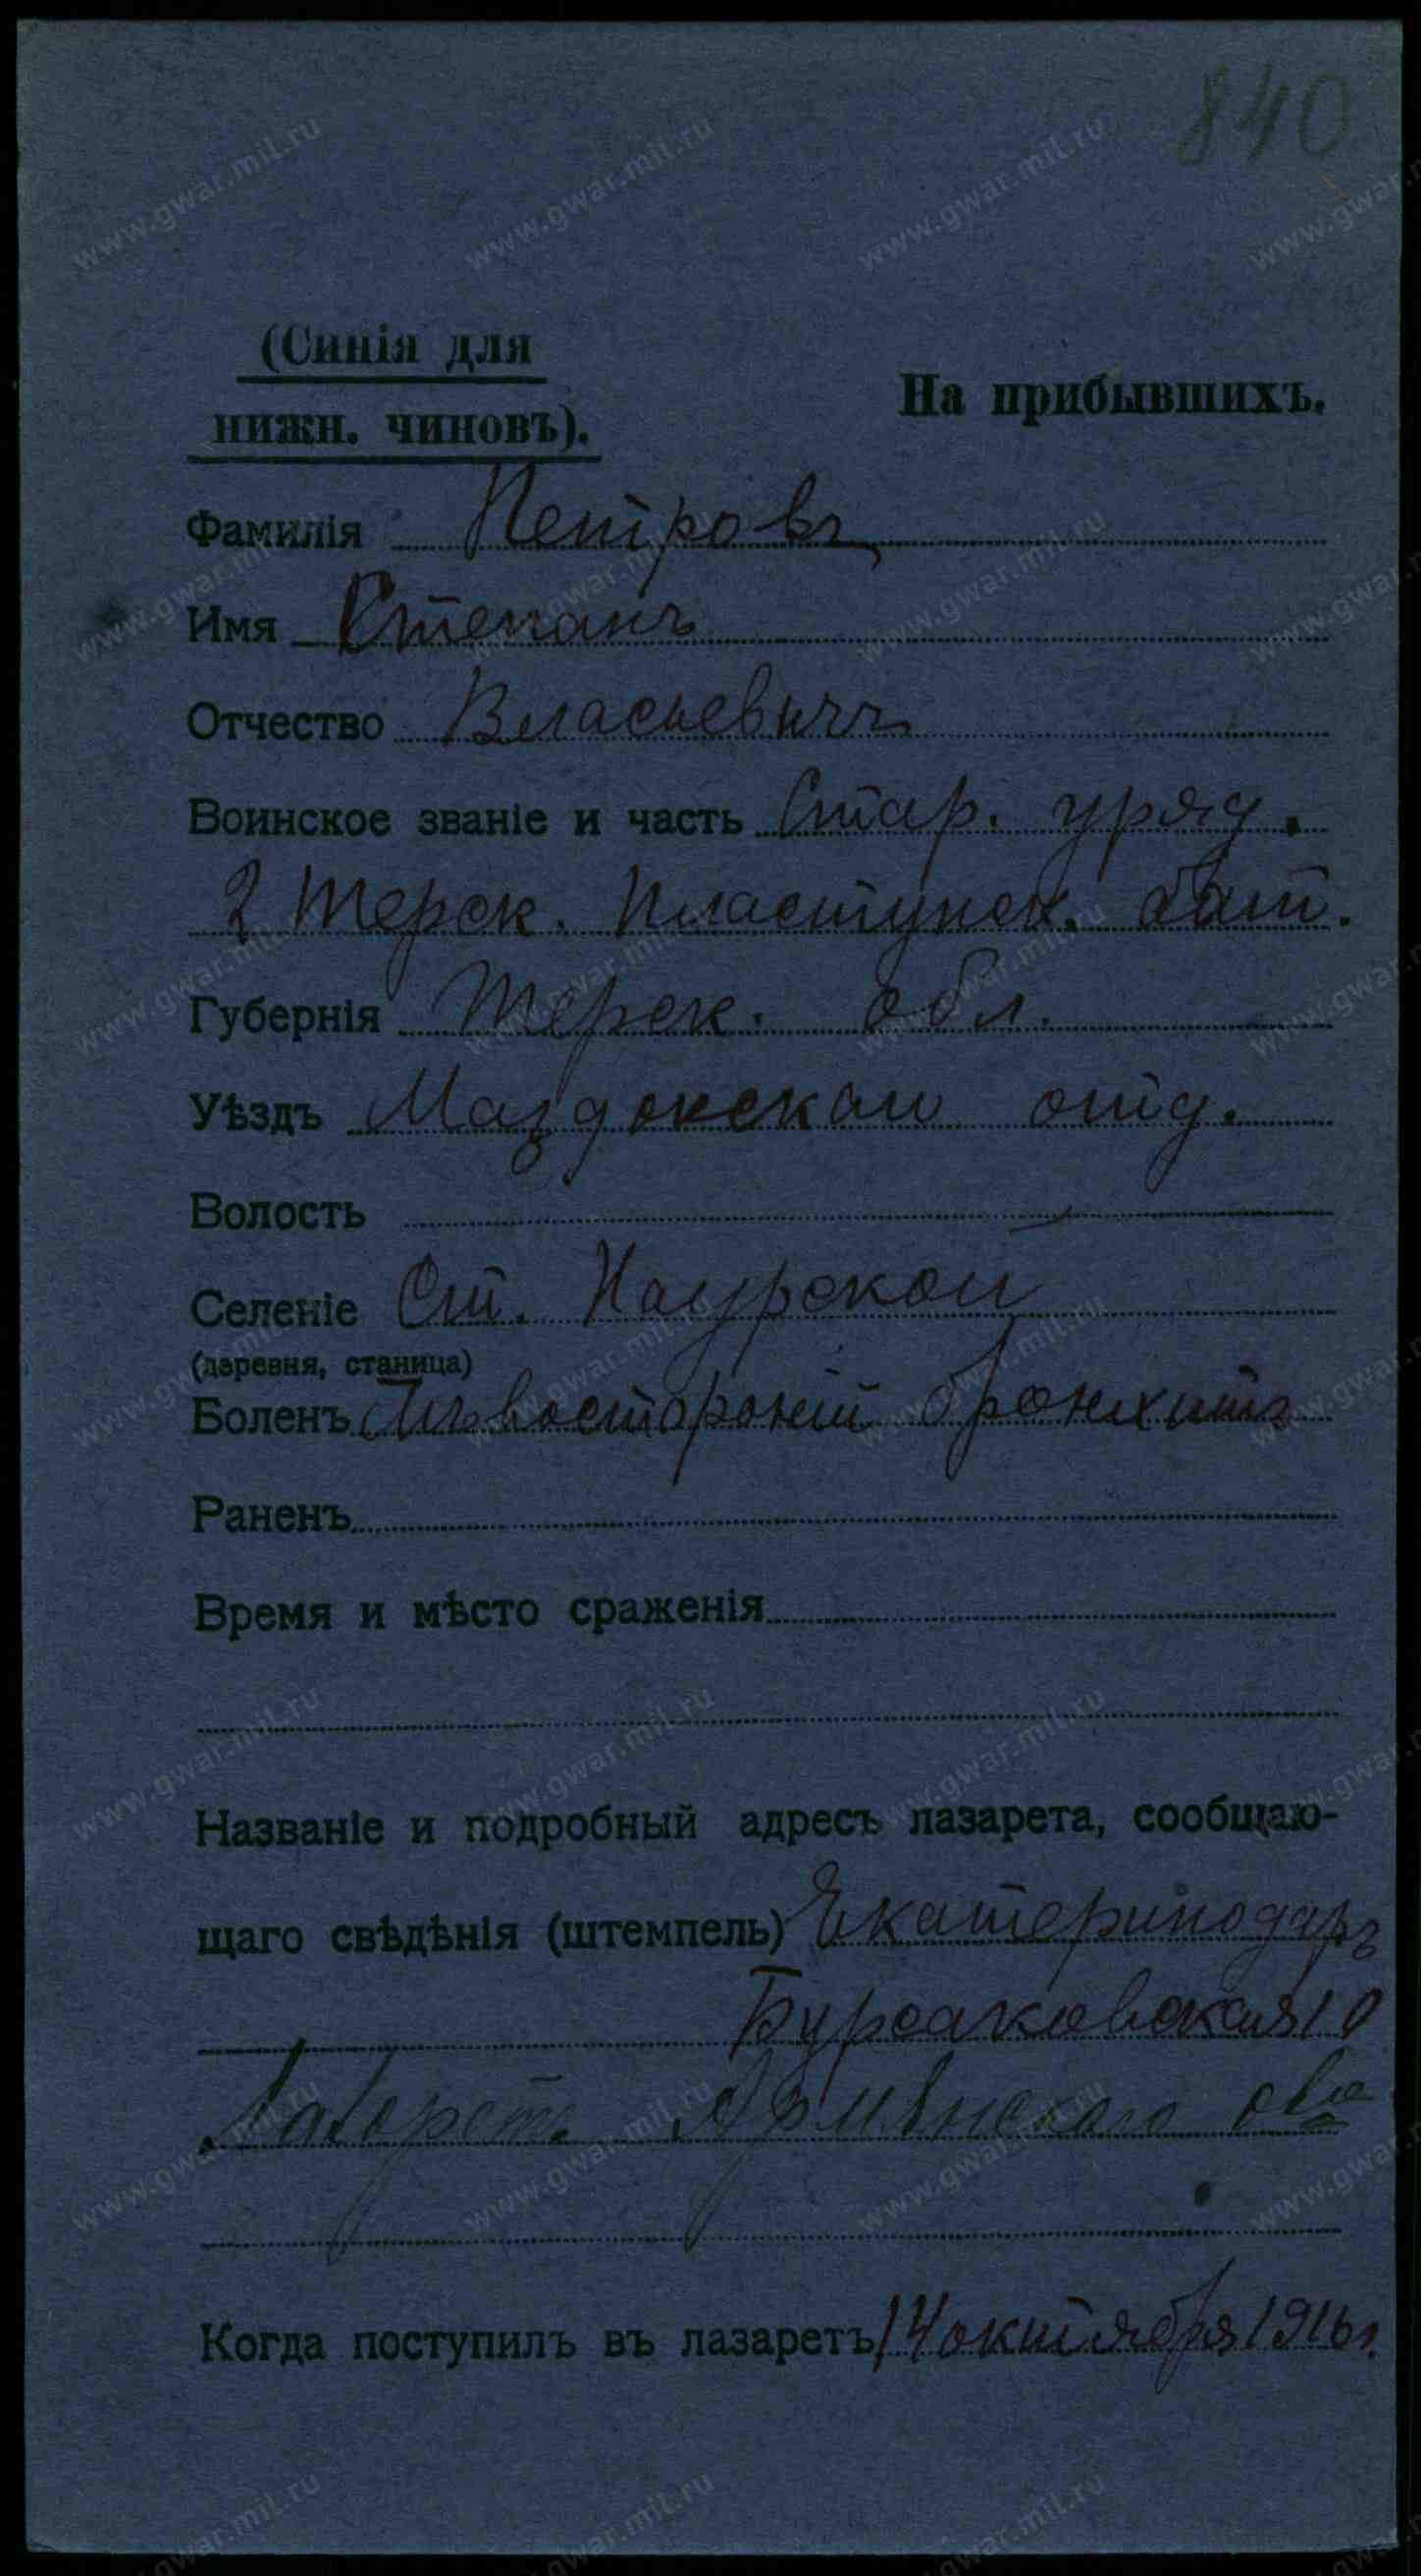 840
(Синія для
нижн. чиновъ).
На прибывшихъ.
Фамилія Петровъ
Имя Степанъ
Отчество Власьевичъ
Воинское званіе и часть Стар. уряд.
2 Терск. Пластунск. бат.
Губернія Терск. обл.
Уѣздъ Маздокскаго отд.
Волость —
Селеніе Ст. Наурской
(деревня, станица)
Боленъ Лѣвосторонній бронхитъ
Раненъ
Время и мѣсто сраженія
Названіе и подробный адресъ лазарета, сообщаю-
щаго свѣдѣнія (штемпель) Екатеринодаръ
Бурсаковская 10
Лазарет. Армянского о-ва
Когда поступилъ въ лазаретъ 14 октября 1916 г.
www.gwar.mil.ru